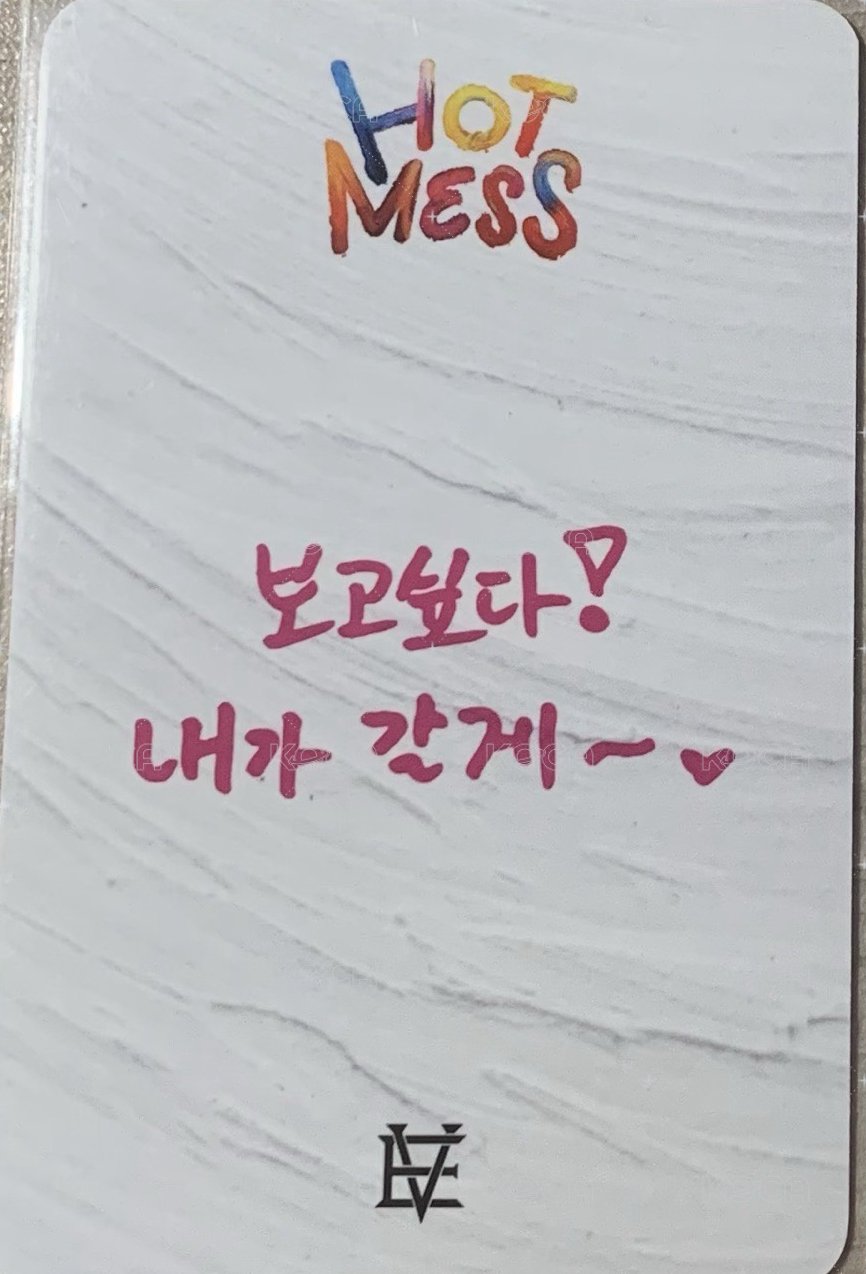 HOT
MESS
보고싶다!
내가 갈게~♥
EVE